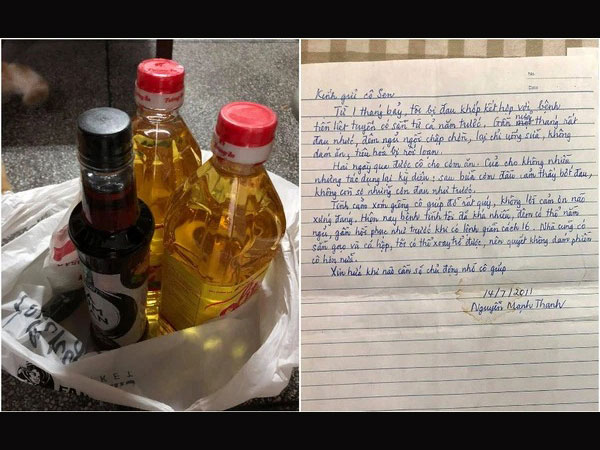 Tường An
Tường An
No.
Date
Kính gửi cô Sen
Từ 1 tháng bảy, tôi bị đau khớp kết hợp với bệnh
tiền liệt tuyến có sẵn từ cả năm trước. Gần nửa tháng rất
đau nhức, đêm ngủ ngồi chập chờn, lại chỉ uống sữa, không
dám ăn, tiêu hoá bị rối loạn.
Hai ngày qua được cô cho cơm ăn. Của cho không nhiều
nhưng tác dụng lại kỳ diệu: sau bữa cơm đầu cảm thấy bớt đau,
không còn có những cơn đau như trước.
Tình cảm xóm giềng cô giúp đỡ rất quý, không lời cảm ơn nào
xứng đáng. Hiện nay bệnh tình tôi đã khá nhiều, đêm có thể nằm
ngủ, gần hồi phục như trước khi có lệnh giãn cách 16. Nhà cũng có
sẵn gạo và cá hộp, tôi có thể xoay trở được, nên quyết không dám phiền
cô hơn nữa.
Xin hứa khi nào cần sẽ chủ động nhờ cô giúp
14/7/2011
Nguyễn Mạnh Thanh